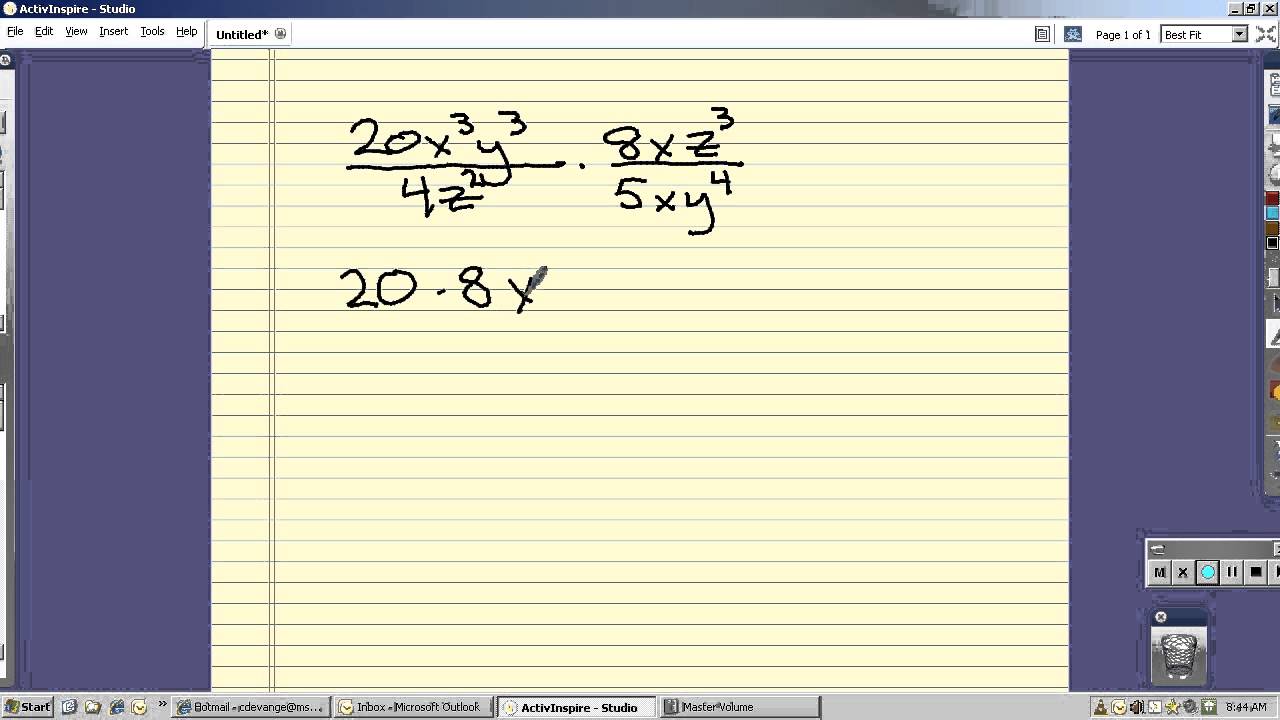 ActivInspire - Studio
File Edit View Insert Tools Help
Untitled*
Page 1 of 1
Best Fit
20x³y³ · 8xz³
4z² 5xy⁴
20 · 8 x
M X
Start
Hotmail - cdevange@ms...
Inbox - Microsoft Outlook
ActivInspire - Studio
Master Volume
8:44 AM